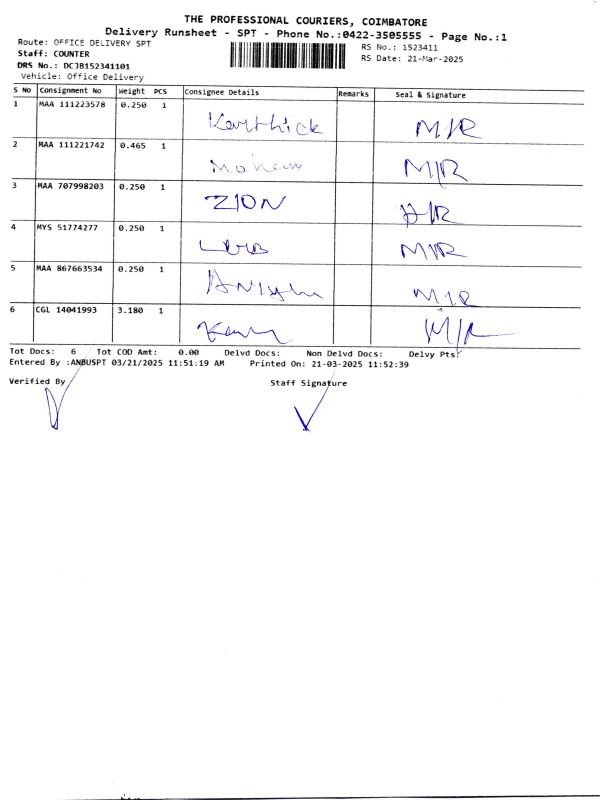 THE PROFESSIONAL COURIERS, COIMBATORE
Delivery Runsheet - SPT - Phone No.:0422-3505555 - Page No.:1
Route: OFFICE DELIVERY SPT
RS No.: 1523411
Staff: COUNTER
RS Date: 21-Mar-2025
DRS No.: DCJB152341101
Vehicle: Office Delivery
S No Consignment No Weight PCS Consignee Details Remarks Seal & Signature
1 MAA 111223578 0.250 1 Karthick M/R
2 MAA 111221742 0.465 1 M/R
3 MAA 707998203 0.250 1 ZION
4 MYS 51774277 0.250 1 M/R
5 MAA 867663534 0.250 1 M/R
6 CGL 14041993 3.180 1 M/R
Tot Docs: 6 Tot COD Amt: 0.00 Delvd Docs: Non Delvd Docs: Delvy Pts:
Entered By :ANBUSPT 03/21/2025 11:51:19 AM Printed On: 21-03-2025 11:52:39
Verified By Staff Signature